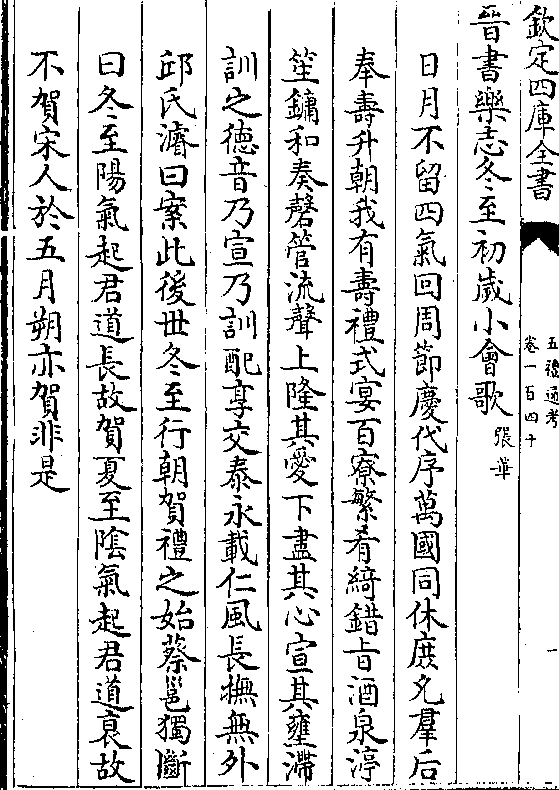 欽定四庫全書
五禮通考
卷一百四十
一
晉書樂志冬至初歲小會歌 張華
日月不留四氣回周節慶代序萬國同休庶尹羣后
奉壽升朝我有壽禮式宴百寮繁肴綺錯旨酒泉渟
笙鏞和奏磬管流聲上隆其愛下盡其心宣其壅滯
訓之德音乃宣乃訓配享交泰永載仁風長撫無外
邱氏濬曰案此後世冬至行朝賀禮之始蔡邕獨斷
曰冬至陽氣起君道長故賀夏至陰氣起君道衰故
不賀宋人於五月朔亦賀非是